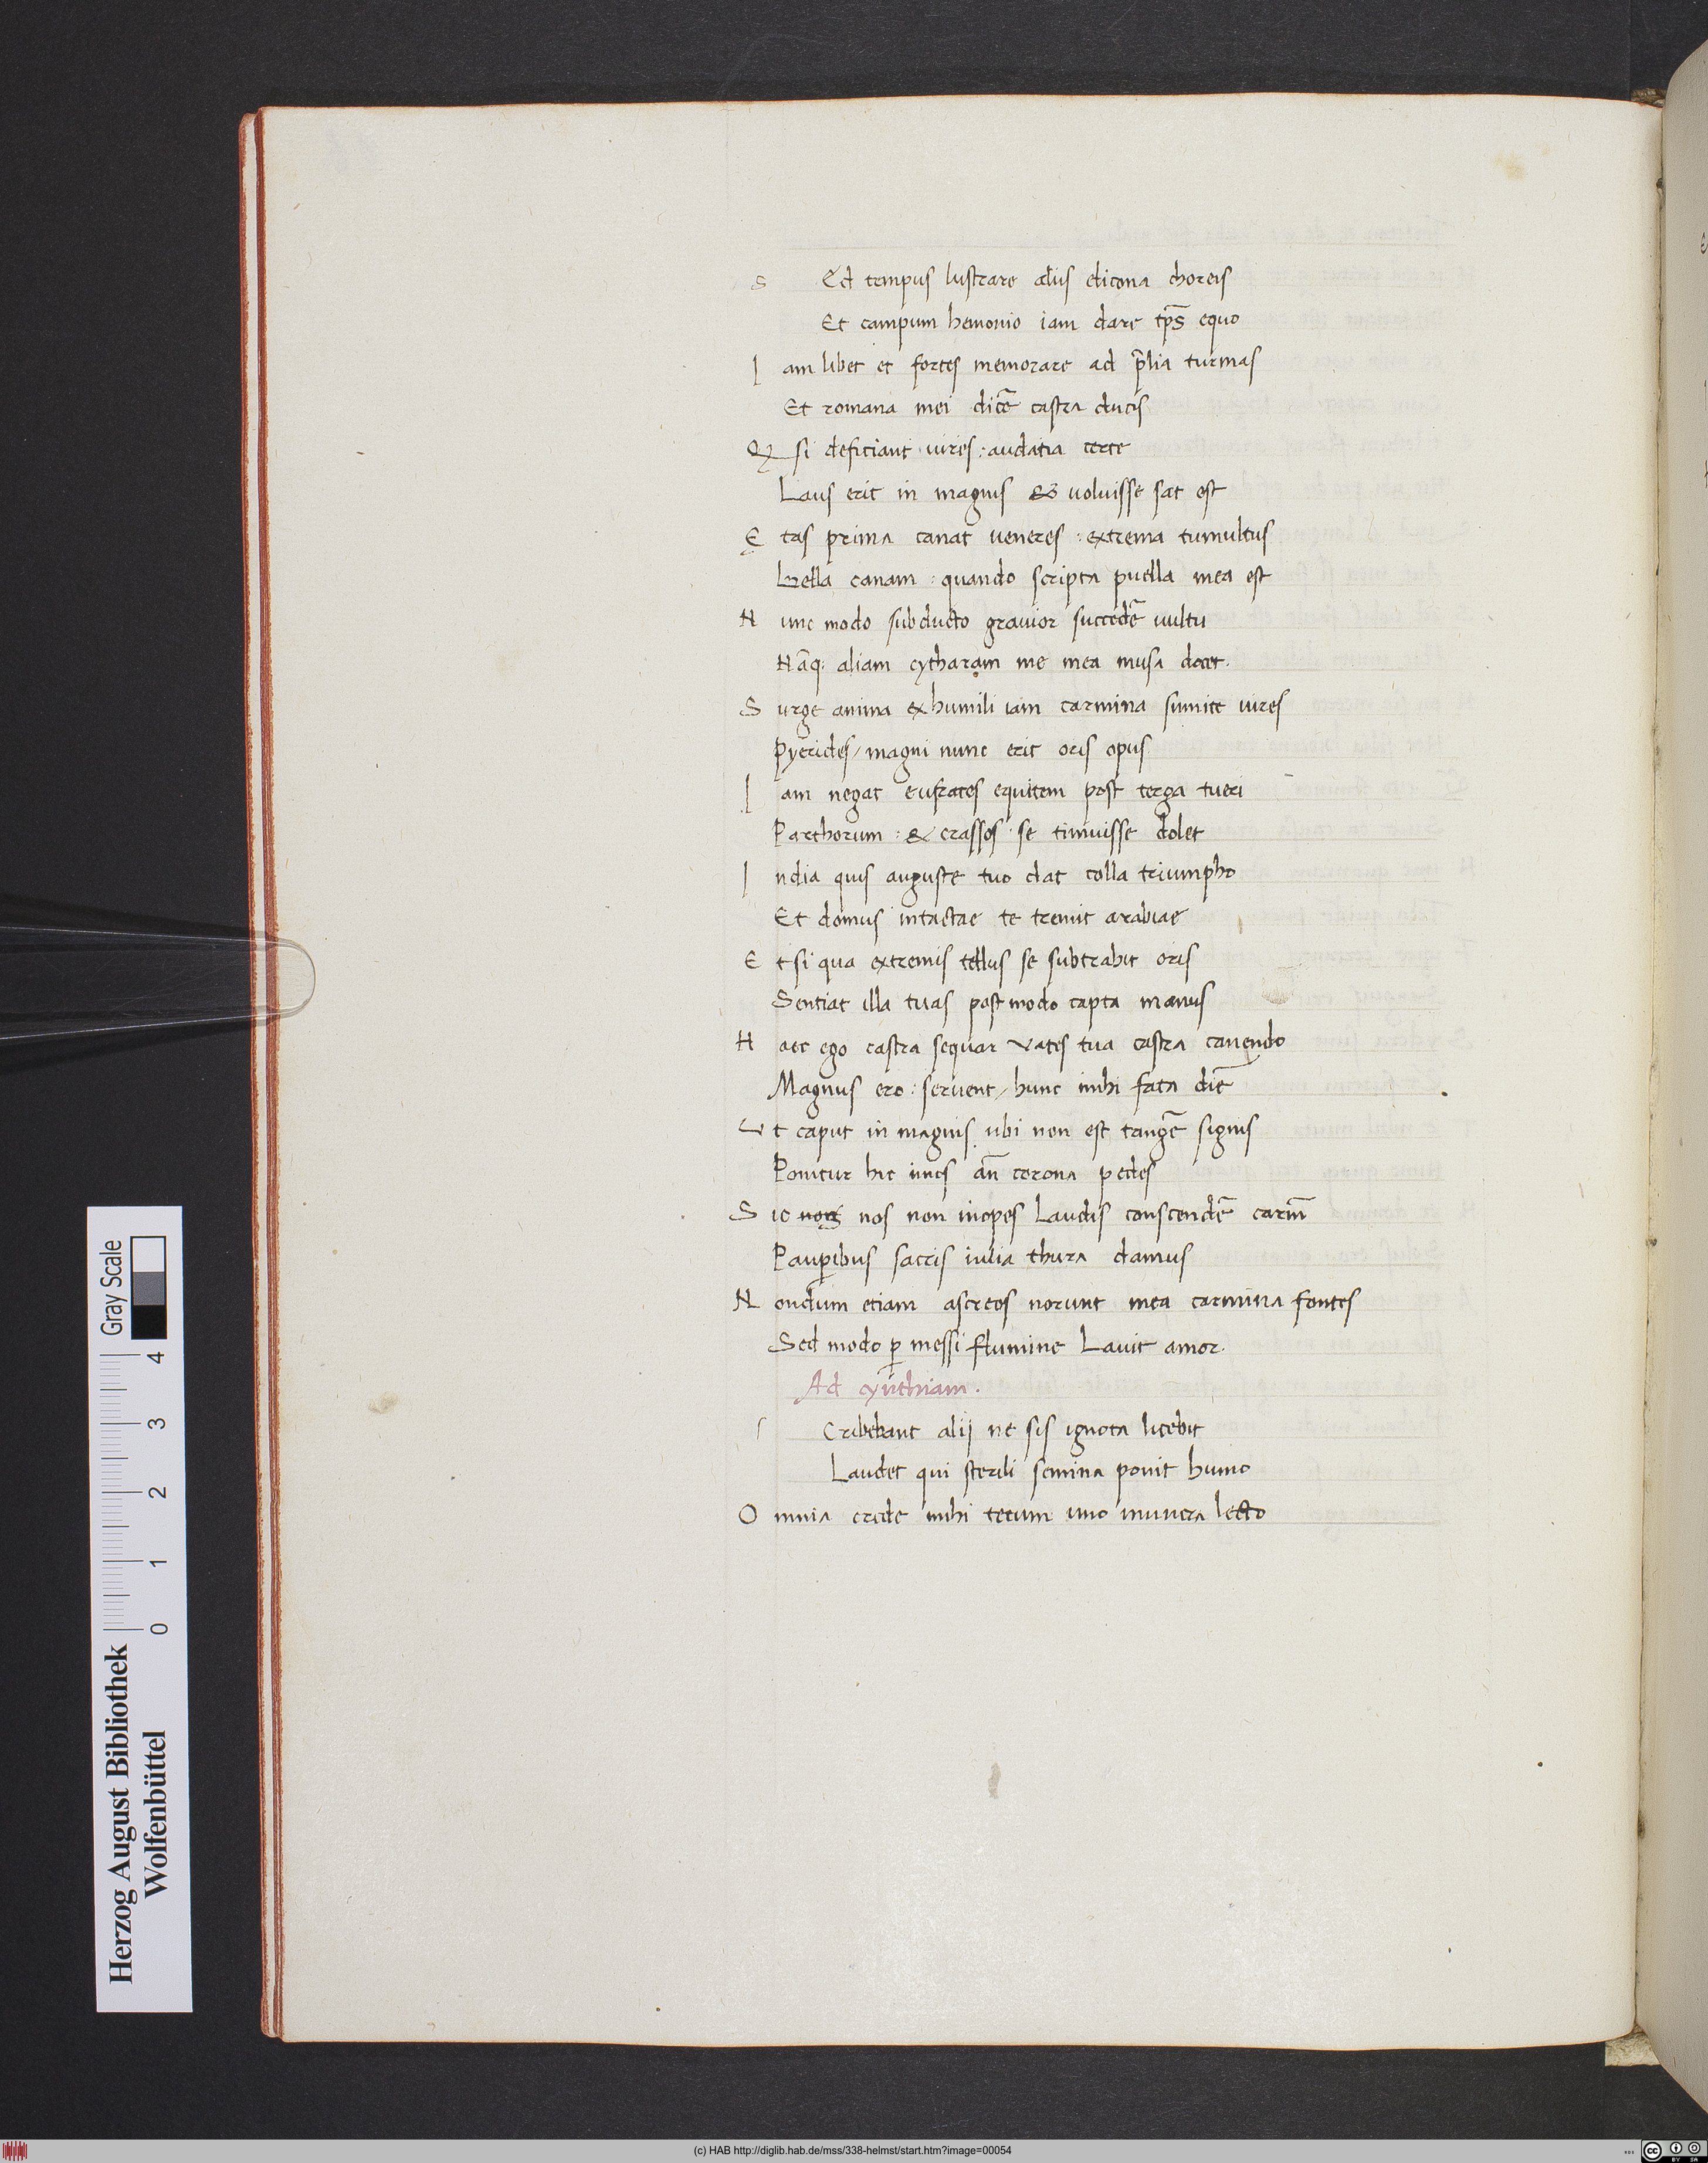 S Ed tempus lustrare aliis elicona choreis
Et campum hemonio iam dare tp̄s equo
I am libet et fortes memorare ad p̄lia turmas
Et romana mei dicē castra ducis
Qꝫ si deficiant uires : audatia certe
Laus erit in magnis & uoluisse sat est
Ę tas prima canat ueneres : extrema tumultus
Bella canam : quando scripta puella mea est
N unc modo subducto grauior succedē uultu
Nāq; aliam cytharam me mea musa docet.
S urge anima ex humili iam carmina sumite uires
Pyerides / magni nunc erit oris opus
I am negat eufrates equitem post terga tueri
Parthorum : & crassos se timuisse dolet
I ndia quis auguste tuo dat colla triumpho
Et domus intactae te tremit arabiae
E t si qua extremis tellus se subtrahit oris
Sentiat illa tuas postmodo capta manus
H aec ego castra sequar vates tua castra canendo
Magnus ero : seruent / hunc mihi fata diē
V t caput in magnis ubi non est tangē signis
Ponitur hic imos an̄ corona pedes
S ic nos non inopes laudis conscendē carm̄
Pauꝑibus sacris iulia thura damus
N ondum etiam ascreos norunt mea carmina fontes
Sed modo ꝑ messi flumine Lauit amor.
Ad cynthiam.
S Cribebant alij ne sis ignota licebit
Laudet qui sterili semina ponit humo
O mnia crede mihi tecum uno munera lecto
Herzog August Bibliothek
Wolfenbüttel
0 1 2 3 4
Gray Scale
(c) HAB http://diglib.hab.de/mss/338-helmst/start.htm?image=00054
cc BY SA